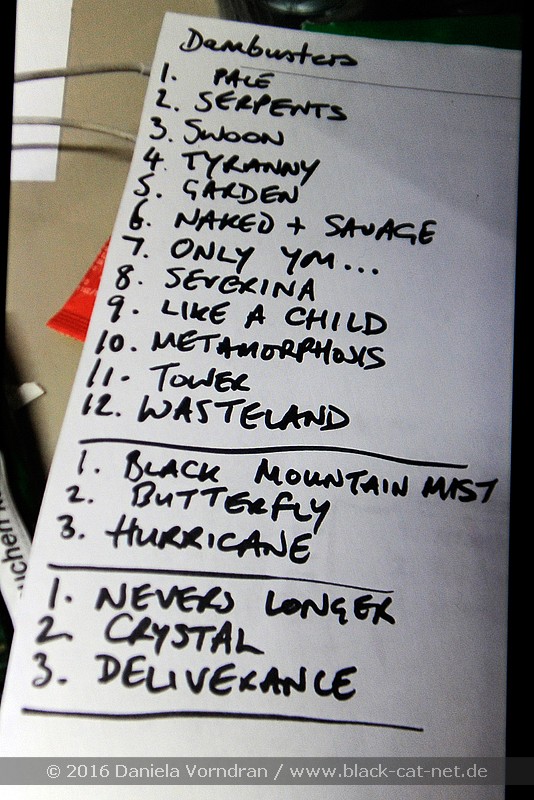 Dambusters
1. PALE
2. SERPENTS
3. SWOON
4. TYRANNY
5. GARDEN
6. NAKED + SAVAGE
7. ONLY YM...
8. SEVERINA
9. LIKE A CHILD
10. METAMORPHOSIS
11. TOWER
12. WASTELAND
1. BLACK MOUNTAIN MIST
2. BUTTERFLY
3. HURRICANE
1. NEVERS LONGER
2. CRYSTAL
3. DELIVERANCE
© 2016 Daniela Vorndran / www.black-cat-net.de